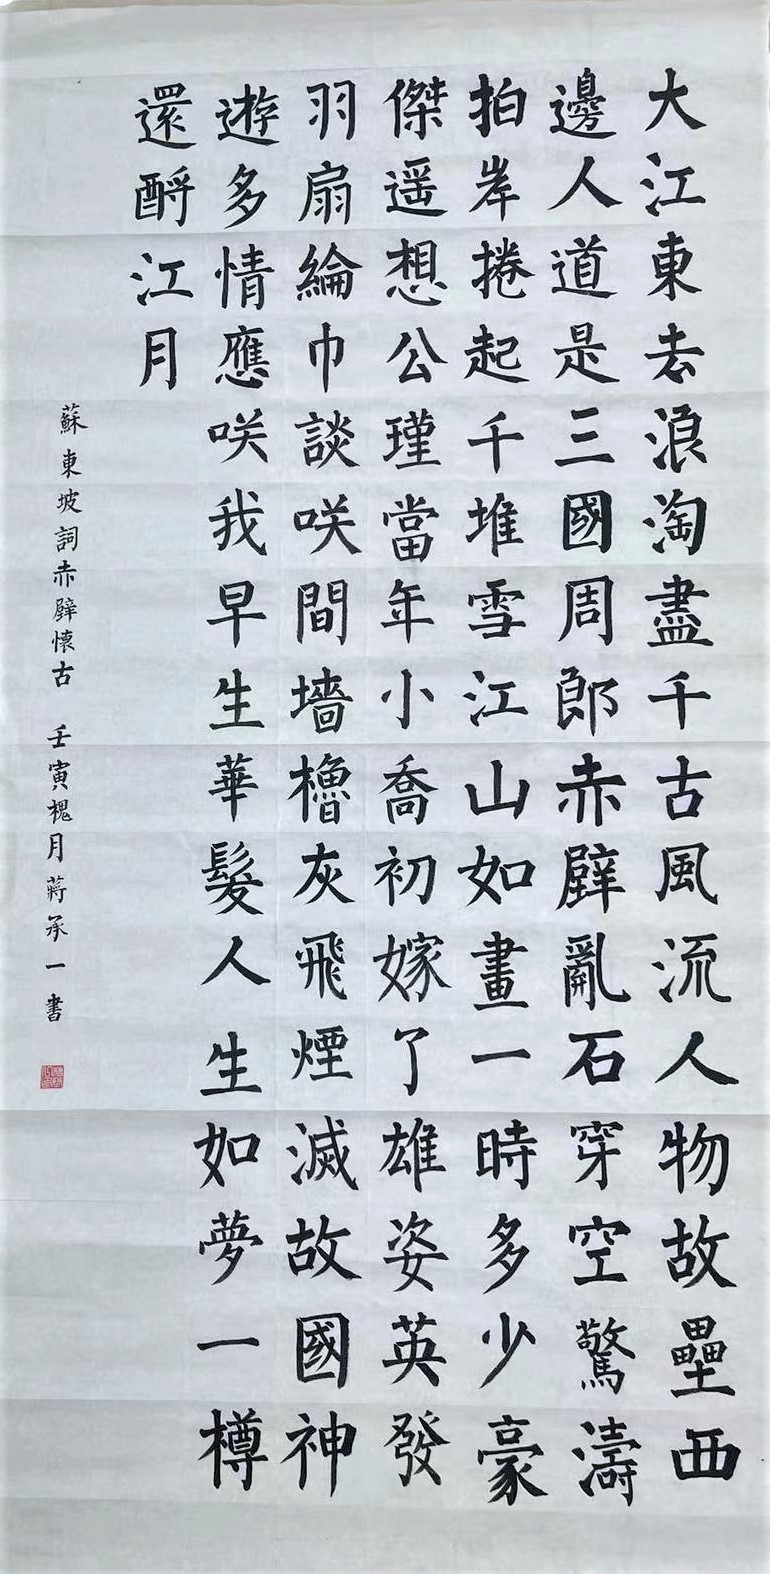 大江東去浪淘盡千古風流人物故壘西
邊人道是三國周郎赤壁亂石穿空驚濤
拍岸捲起千堆雪江山如畫一時多少豪
傑遥想公瑾當年小喬初嫁了雄姿英發
羽扇綸巾談咲間墻櫓灰飛煙滅故國神
遊多情應咲我早生華髮人生如夢一樽
還酹江月
蘇東坡詞赤壁懷古 壬寅槐月蔣承一書